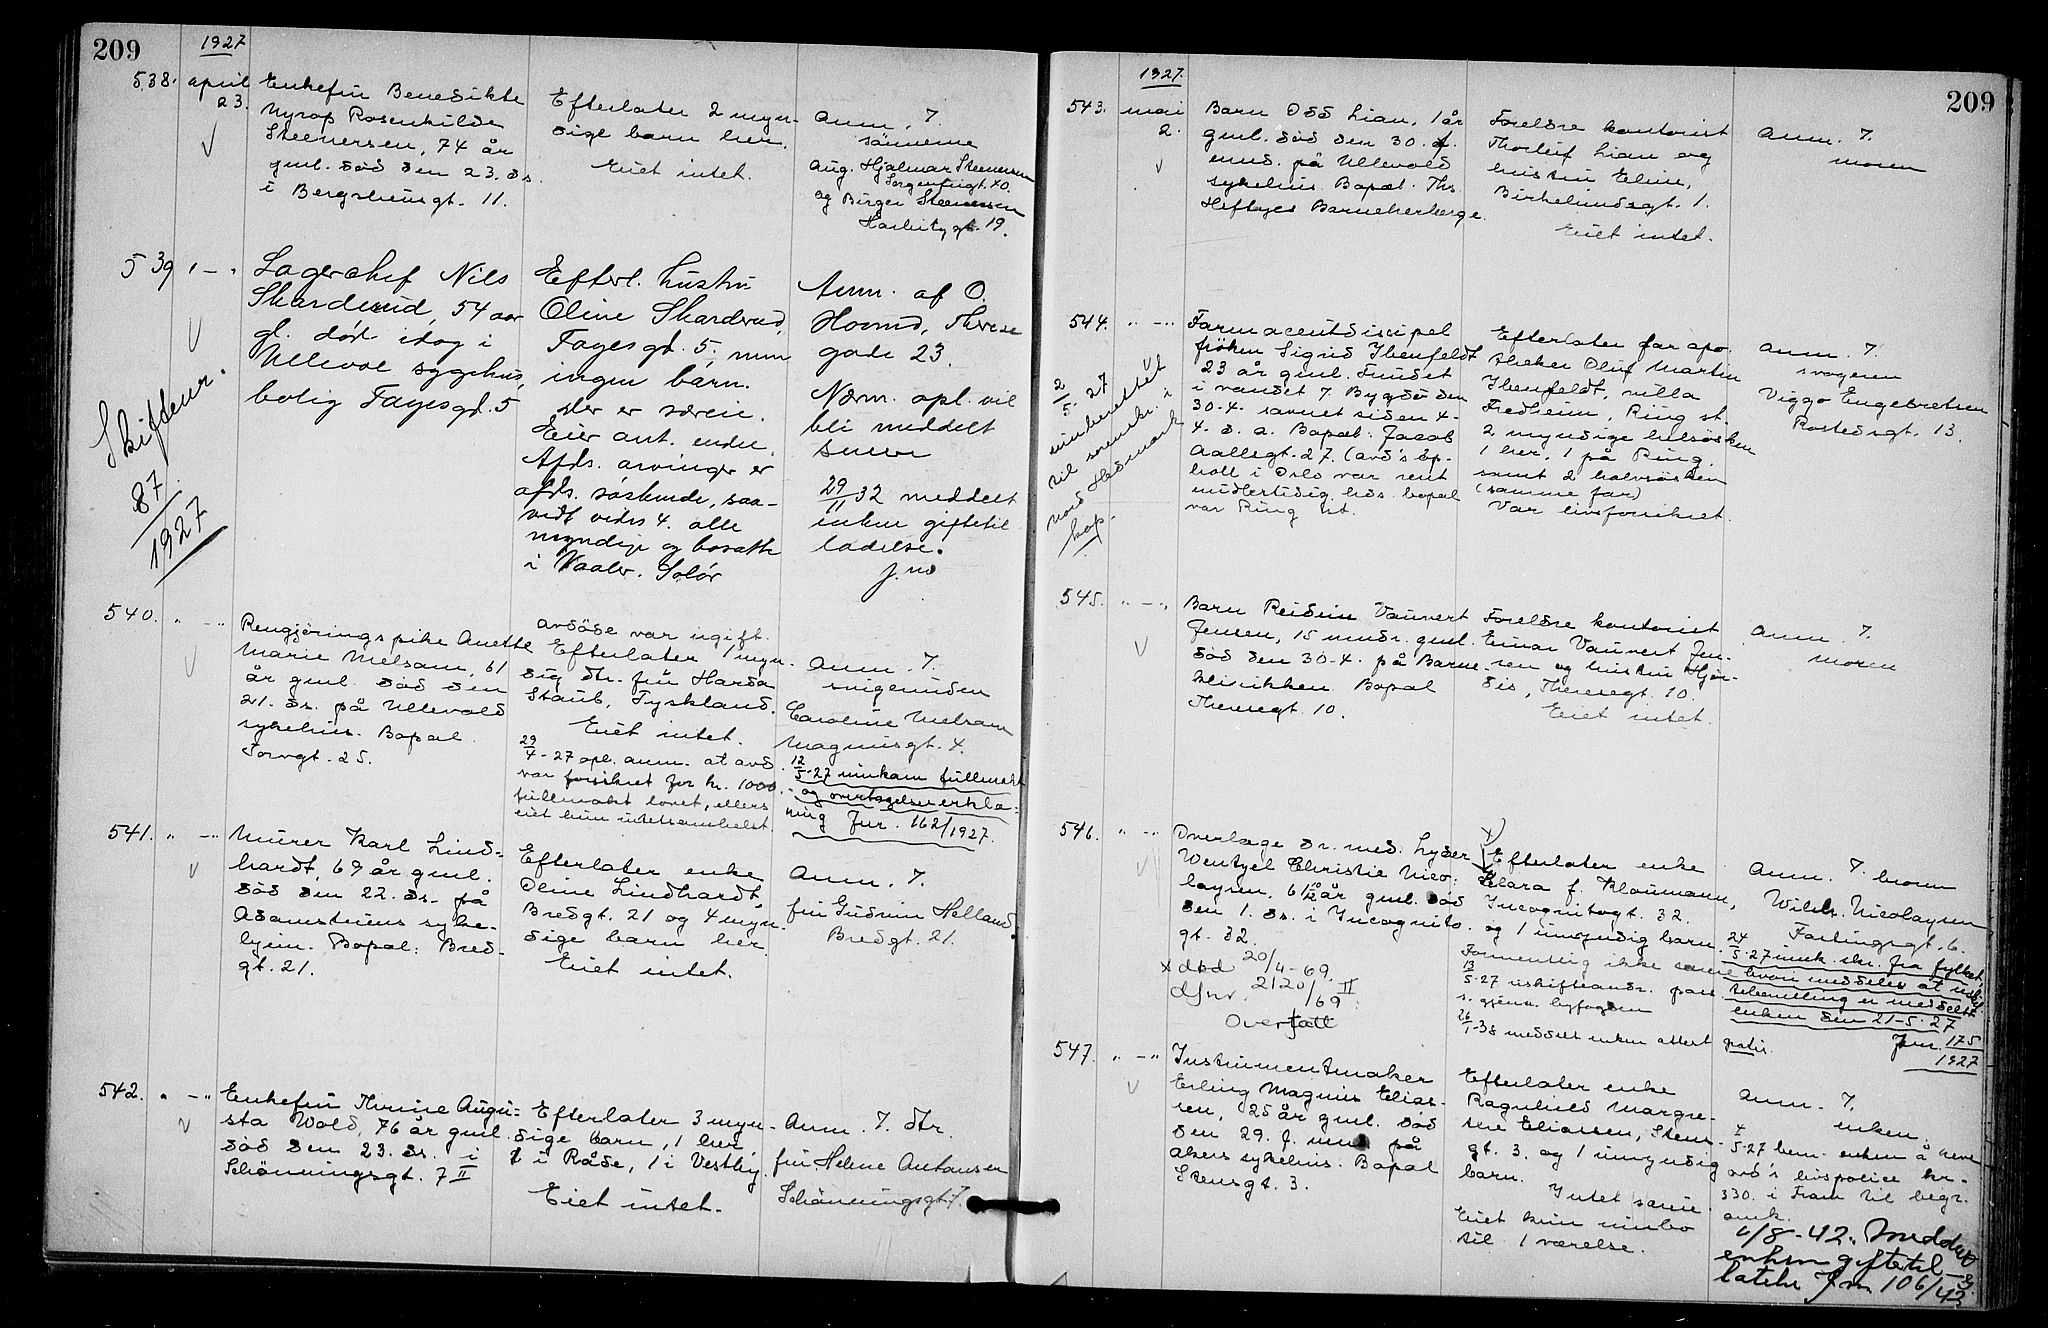 209
1927
538. april 23.
Enkefru Benedikte
Nyrop Rosenkilde
Steenersen, 74 år
gml. död den 23. ds.
i Bergsliensgt. 11.
Efterlater 2 myn-
dige barn her.
Eiet intet.
Anm. 7.
sönnerne
Aug. Hjalmar Steenersen
Sorgenfrigt. 40.
og Birger Steenersen
Harbitzgt. 19.
539 " — "
Lagerchef Nils
Skarderud, 54 aar
gl. död idag i
Ullevol sygehus,
bolig Fagesgt. 5
Skiftevr.
87/1927
Efterl. hustru
Oline Skarderud,
Fagesgt. 5; men
ingen barn.
Der er særeie.
Eier ant. endel.
Afds. arvinger er
afds. söskende, saa-
vidt vides 4. alle
myndige og bosatte
i Vaaler. Solör
Anm. af O.
Hovind, Therese
gade 23.
Nærm. opl. vil
bli meddelt
senere
29/11 32 meddelt
enken giftetil
ladelse.
J.no
540. " — "
Rengjöringspike Anette
Marie Melsom, 61
år gml. död den
21. ds. på Ullevold
sykehus. Bopæl
Torvgt. 25.
avdöde var ugift.
Efterlater 1 myn-
dig dtr. fru Harda
Staub, Tyskland.
Eiet intet.
29/4-27 opl. anm. at avd.
var forsikret for kr. 1000.-
fullmakt lovet, ellers
eiet hun intetsomhelst.
Anm. 7.
svigerinden
Caroline Melsom
Magnusgt. 4.
12/5-27 innkom fullmakt
og overtagelseserklæ-
ring Jnr. 162/1927.
541. " — "
Murer Karl Lind-
hardt, 69 år gml.
död den 22. ds. på
Adamstuens syke-
hjem. Bopæl: Bred-
gt. 21.
Efterlater enke
Oline Lindhardt,
Bredgt. 21 og 4 myn-
dige barn her
Eiet intet.
Anm. 7.
fru Gudrun Helland
Bredgt. 21.
542. " — "
Enkefru Thrine Augu-
sta Wold, 76 år gml.
död den 23. ds. i
Schönningsgt. 7 II
Efterlater 3 myn-
dige barn, 1 her
1 i Råde, 1 i Vestby.
Eiet intet.
Anm. 7. dtr.
fru Helene Antonsen
Schönningsgt. 7.
209
1927.
543. mai 2.
Barn Odd Lian, 1 år
gml. död den 30. f.
mnd. på Ullevold
sykehus. Bopæl. Ths.
Heftyes Barneherberge.
Foreldre kontorist
Thorleif Lian og
hustru Eline,
Birkelundsgt. 1.
Eiet intet.
Anm. 7.
moren
544. " — "
Farmaceutdisipel
fröken Sigrid Ibenfeldt
23 år gml. Fundet
i vandet 7. Bygdö den
30-4. savnet siden 4-
4. d. a. Bopæl: Jacob
Aallsgt. 27. (avd's op-
hold i Oslo var rent
midlertidig, hds. bopæl
var Ring st.
2/5 27
innberettet
til sorenskr. i
nord Hedmark
kop.
Efterlater far apo-
theker Oluf Martin
Ibenfeldt, villa
Fredheim, Ring st.
2 myndige helsösken
1 her, 1 på Ring,
samt 2 halvsösken
(samme far)
Var livsforsikret.
Anm. 7.
svogeren
Viggo Engebretsen
Rostedsgt. 13.
545. " — "
Barn Reidun Vauvert
Jensen, 15 mndr. gml.
död den 30-4. på Barne-
klinikken. Bopæl
Theresegt. 10.
Foreldre kontorist
Einar Vauvert Jen-
sen og hustru Hjör-
dis, Theresegt. 10.
Eiet intet.
Anm. 7.
moren
546. " — "
Overlæge dr. med. Lyder
Wentzel Christie Nico-
laysen, 61 10/12 år gml. död
den 1. ds. i Incognito-
gt. 32.
x död 20/4-69.
Djnr. 2120/69 II
Overfall
x)
Efterlater enke
Klara f. Klaumann,
Incognitogt. 32.
og 1 umyndig barn.
Formentlig ikke særeie
13/5-27 uskifteandr. pass.
s. gjenn. byfogden
26/1-38 meddelt enken attest gratis.
Anm. 7. broren
Wilh. Nicolaysen
Fastingsgt. 6.
24/5-27 innk. skr. fra fylket,
hvori meddeles at uskifte
bevilling er meddelt
enken den 21-5-27
Jnr. 175/1927
547. " — "
Instrumentmaker
Erling Magnus Elias-
sen, 25 år gml. död
den 29. f. mnd på
Akers sykehus. Bopæl
Stensgt. 3.
Efterlater enke
Ragnhild Margre-
the Eliassen, Stens-
gt. 3. og 1 umyndig
barn.
Intet særeie
Eiet kun innbo
til 1 værelse.
Anm. 7.
enken.
4/5-27 bem. enken å heve
avd's livspolice kr.
330. i Fram til begr.
omk.
6/8-42. Meddelt
enken giftetil-
latelse Jnr. 106/42